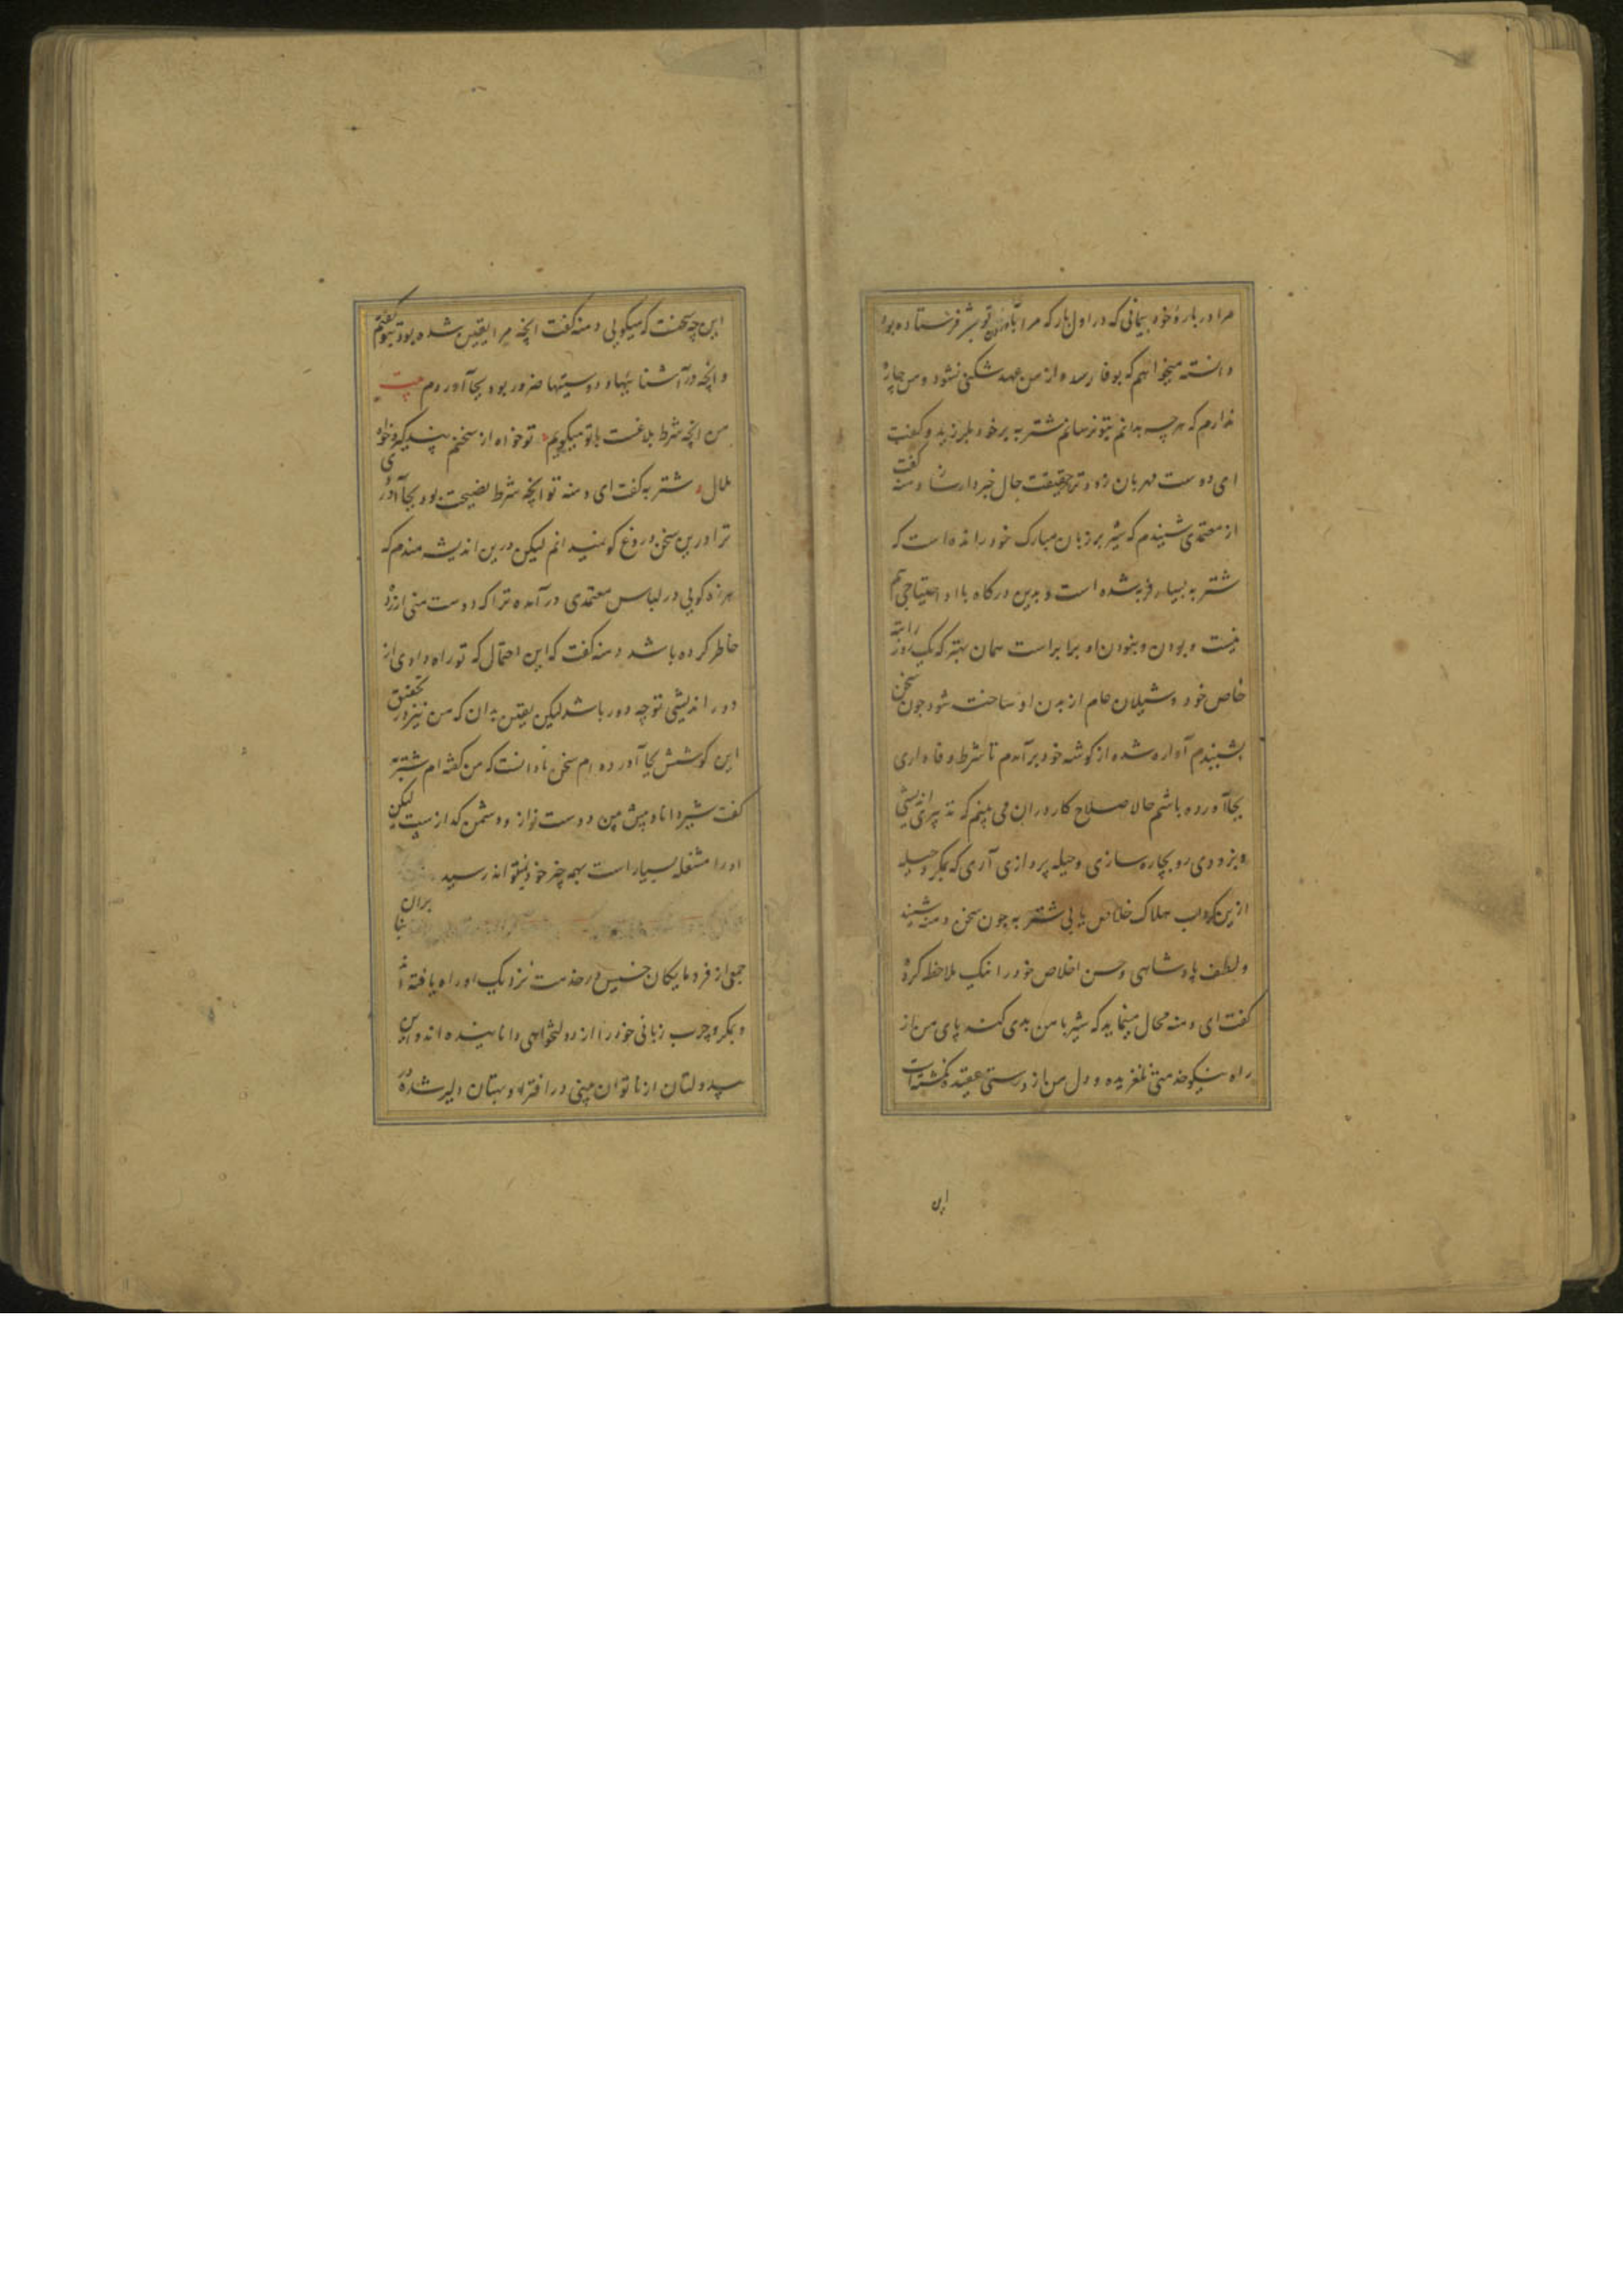 مرا در باره خود پیمانی که در اول بار که مرا به آوردن تو شیر فرستاده بود
دانسته میخواهم که بوفا رسد و از من عهد شکنی نشود و من چاره
ندارم که هر چه بدانم بتو نرسانم شتربه بر خود بلرزید و گفت
ای دوست مهربان زود تر حقیقت حال خبردار ساز دمنه گفت
از معتمدی شنیدم که شیر بر زبان مبارک خود رانده است که
شتربه بسیار فربه شده است و بدین درگاه با او احتیاجی هم
نیست و بودن و نبودن او برابر است همان بهتر که یک روز راتبه
خاص خود و شیلان عام از بدن او ساخته شود چون سخن
بشنیدم آواره شده از گوشه خود برآمدم تا شرط وفاداری
بجا آورده باشم حالا صلاح کار در آن می بینم که تدبیر اندیشی
و بزودی رو بچاره سازی و حیله پردازی آری که بمکر و حیله
ازین گرداب هلاک خلاص یابی شتربه چون سخن دمنه شنید
و لطف پادشاهی و حسن اخلاص خود را نیک ملاحظه کرده
گفت ای دمنه محال مینماید که شیر با من بدی کند پای من از
راه نیکو خدمتی نلغزیده و دل من از درستی عقیده نگشته است
این
این چه سخنست که میگویی دمنه گفت آنچه مرا یقین شده بود بتو گفتم
و آنچه در آشناییها و دوستیها ضرور بود بجا آوردم بیت
من آنچه شرط بلاغست با تو میگویم تو خواه از سخنم پند گیر و خواه
ملال شتربه گفت ای دمنه تو آنچه شرط نصیحت بود بجا آوردی
ترا درین سخن دروغ گو نمیدانم لیکن درین اندیشه مندم که
هرزه گویی در لباس معتمدی درآمده ترا که دوست منی آزرده
خاطر کرده باشد دمنه گفت که این احتمال که تو راه دادی از
دور اندیشی تو چه دور باشد لیکن یقین بدان که من نیز در تحقیق
این کوشش بجا آورده ام سخن نادانست که من گفته ام شتربه
گفت شیر دانا و پیش بین و دوست نواز و دشمن گدازست لیکن
او را مشغله بسیار است بهمه چیز خود نمیتواند رسید
بنا بران
جمعی از فرومایگان خسیس در خدمت نزدیک او راه یافته اند
و بمکر و چرب زبانی خود را از دولتخواهی دانا نماینده اند و این
بیدولتان از ناتوان بینی در افترا و بهتان دلیر شده